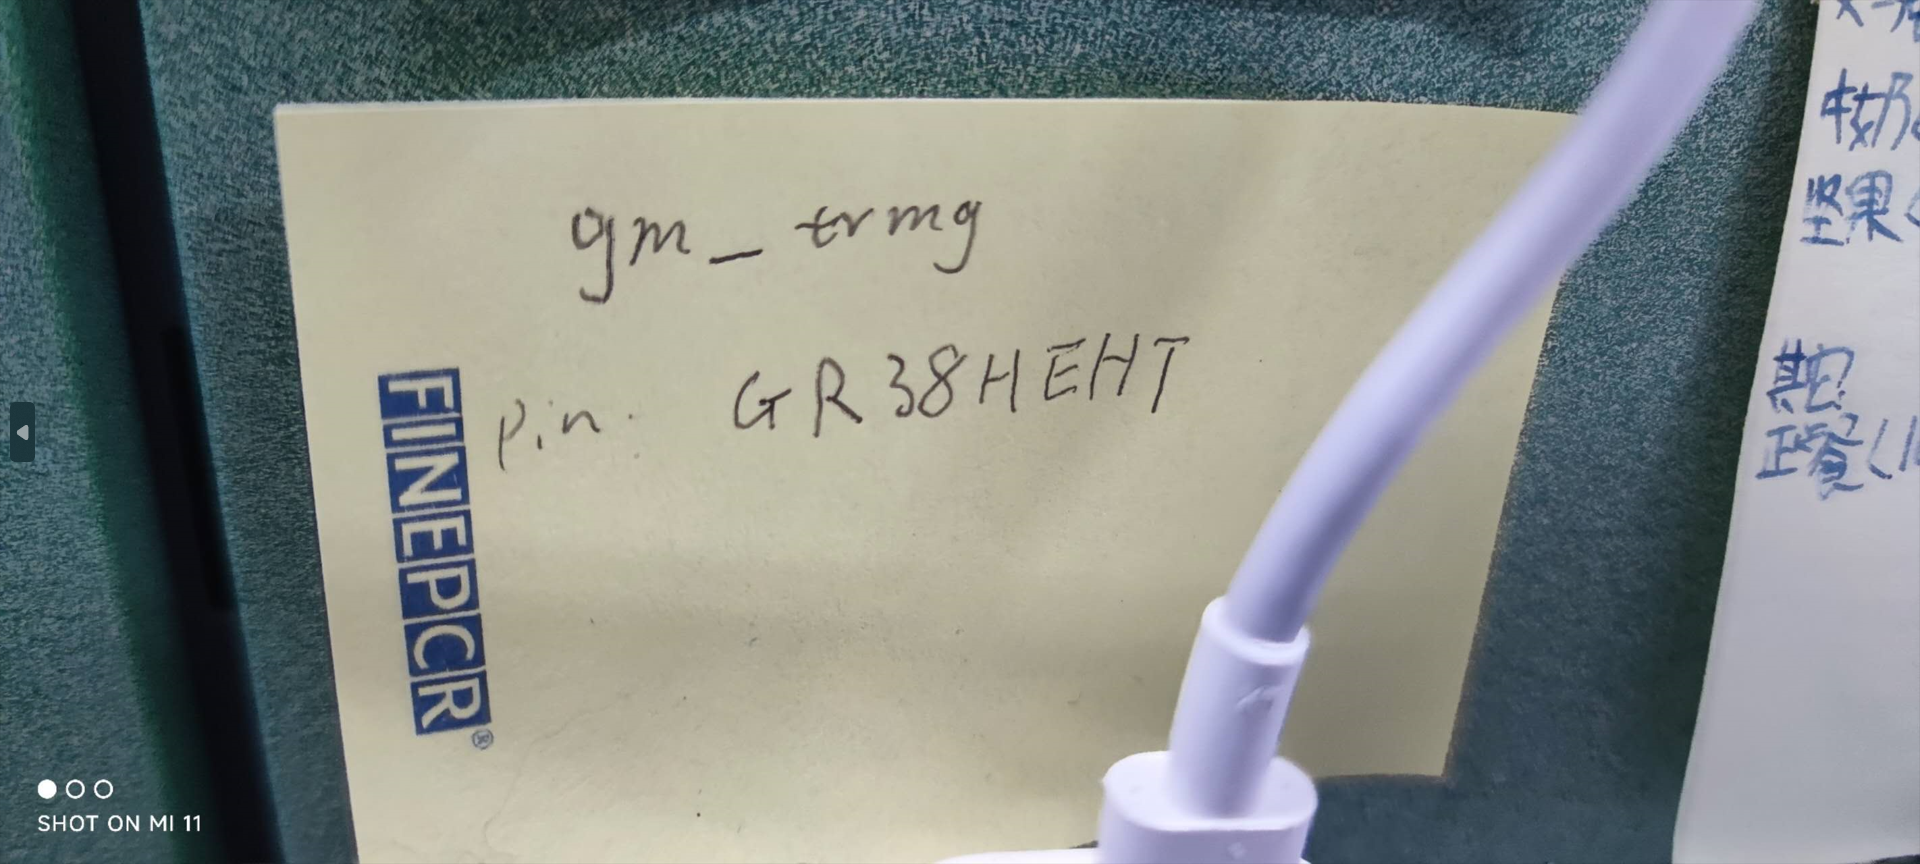 gm_trmg
pin. GR38HEHT
FINEPCR®
牛奶
坚果
其它
正餐(1
SHOT ON MI 11